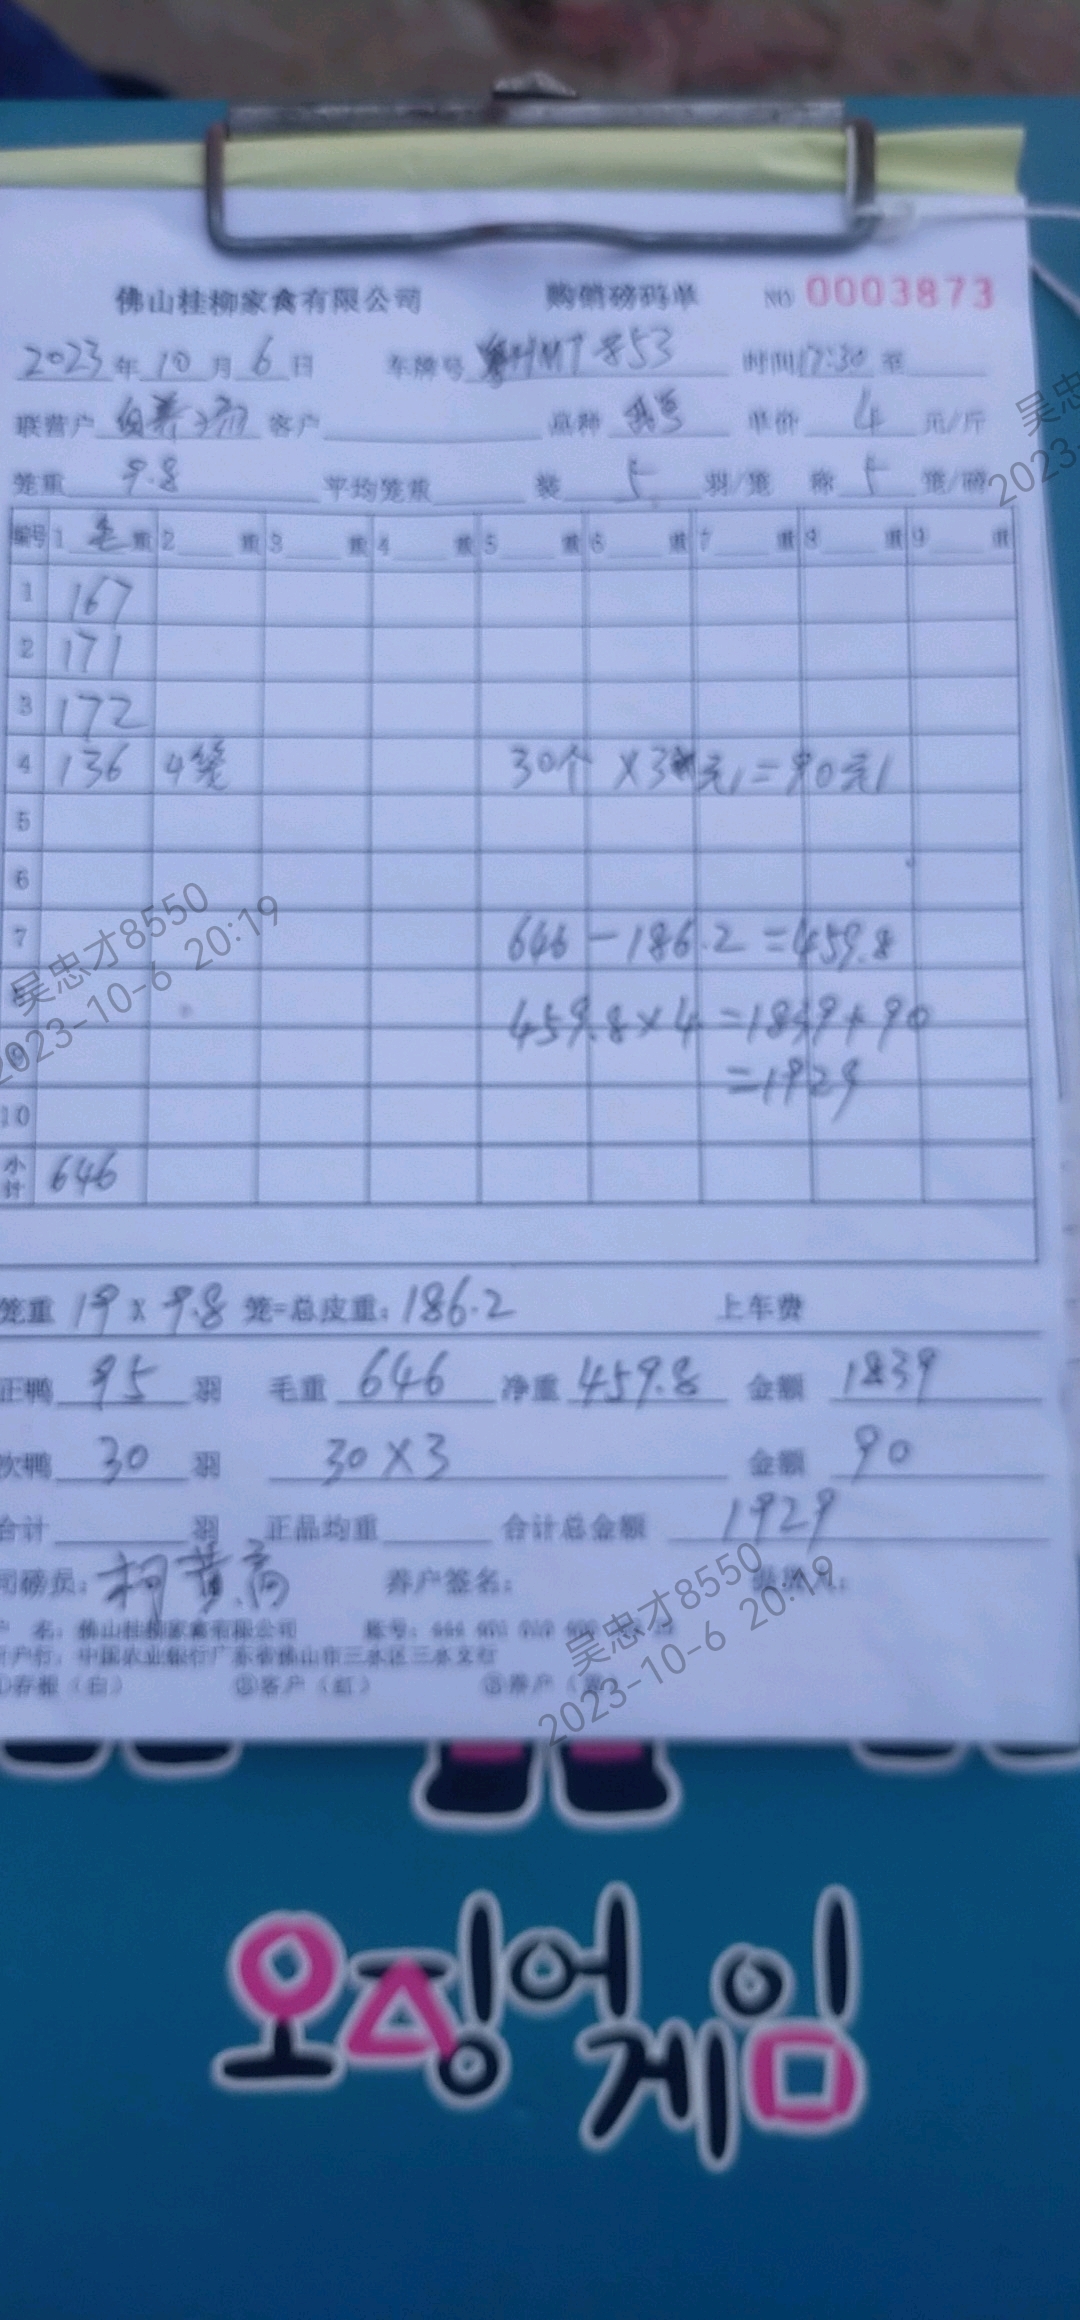 佛山桂柳家禽有限公司 购销磅码单 NO 0003873
2023年10月6日 车牌号 粤HMT853 时间17:30至
联营户 客户 品种 单价 4 元/斤
笼重 9.8 平均笼重 装 5 羽/笼 称 5 笼/磅
编号 1 毛重 2 重 3 重 4 重 5 重 6 重 7 重 8 重 9 重
1 167
2 171
3 172
4 136 4笼 30个×3元/=90元/
5
6
7 646-186.2=459.8
8 459.8×4=1839+90
9 =1929
10
小计 646
笼重 19×9.8 笼=总皮重:186.2 上车费
正鸭 95 羽 毛重 646 净重 459.8 金额 1839
次鸭 30 羽 30×3 金额 90
合计 羽 正品均重 合计总金额 1929
司磅员: 养户签名:
户 名:佛山桂柳家禽有限公司 账号:
开户行:中国农业银行广东省佛山市三水区三水支行
①存根(白) ②客户(红) ③养户
吴忠才8550
2023-10-6 20:19
吴忠才8550
2023-10-6 20:19
吴忠
2023-
오징어
게임